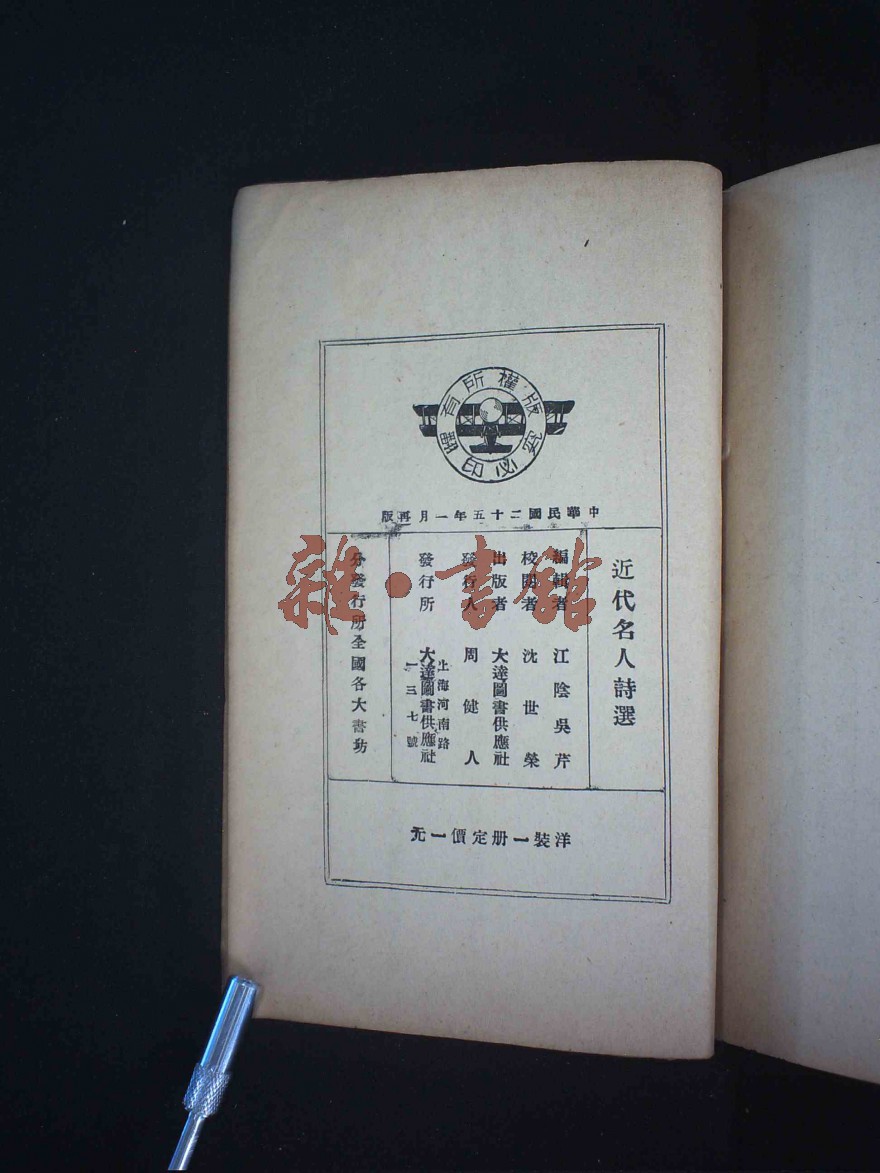 版權所有
翻印必究
中華民國二十五年一月再版
近代名人詩選
編輯者 江陰吳芹
校閱者 沈世榮
出版者 大達圖書供應社
發行人 周健人
發行所 上海河南路一三七號
大達圖書供應社
分發行所全國各大書坊
洋裝一册定價一元
雜·書館